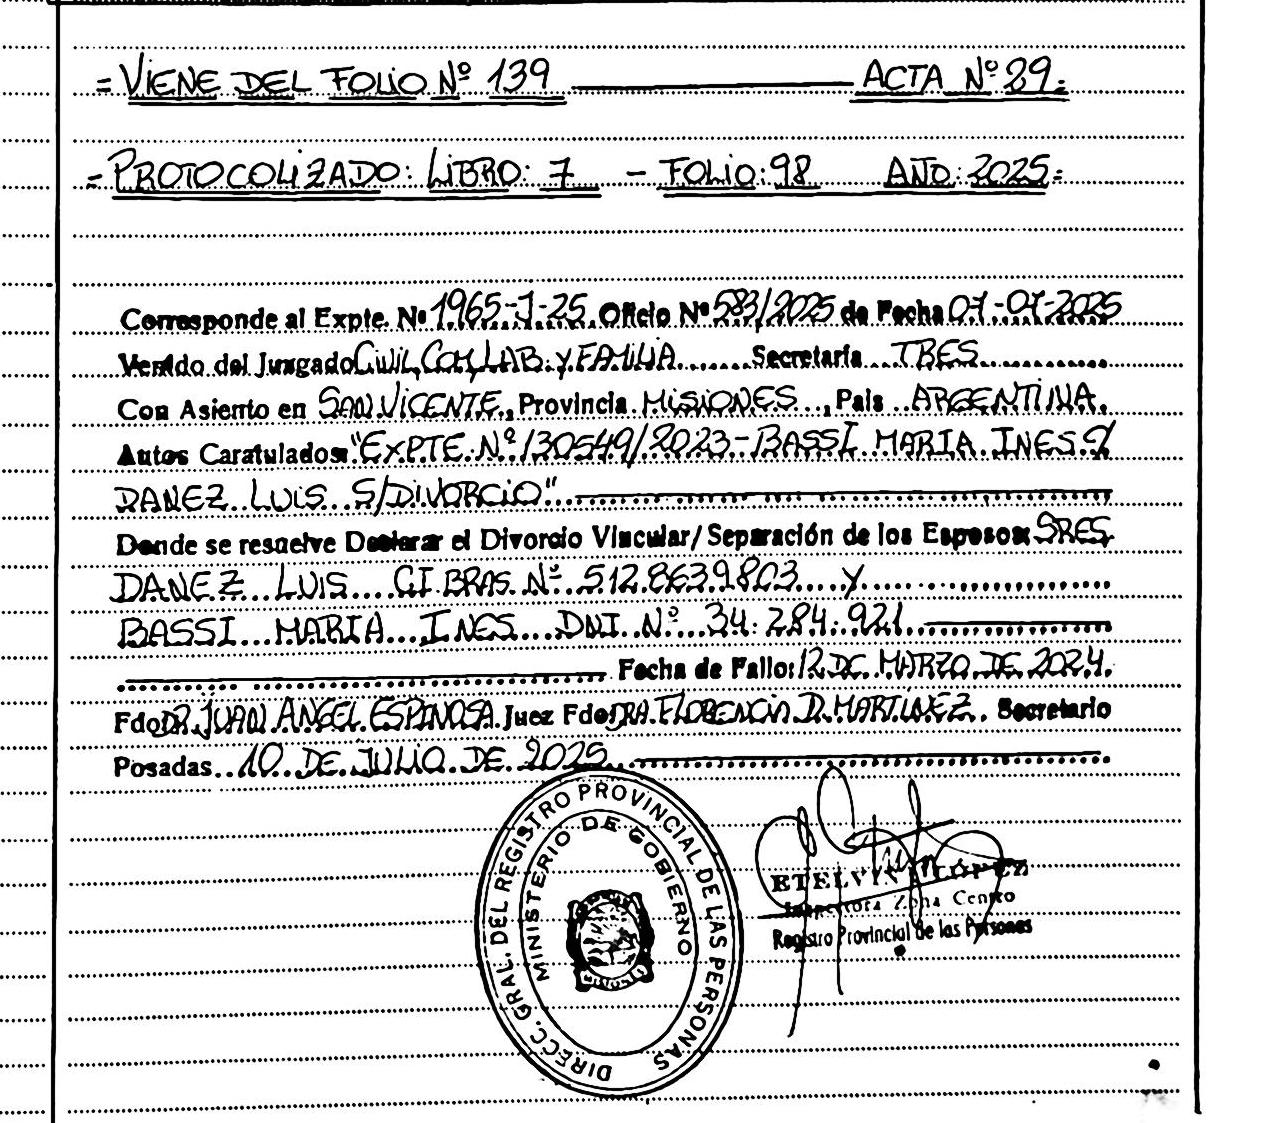 = VIENE DEL FOLIO Nº 139 ACTA Nº 89=
= PROTOCOLIZADO: LIBRO: 7 - FOLIO: 98 AÑO: 2025=
Corresponde al Expte. Nº 1965-J-25 Oficio Nº 583/2025 de Fecha 07-07-2025
Venido del Juzgado CIVIL, COM, LAB. Y FAMILIA Secretaría TRES
Con Asiento en SAN VICENTE, Provincia MISIONES, País ARGENTINA.
Autos Caratulados: "EXPTE. Nº 130549/2023-BASSI MARIA INES C/
DANEZ LUIS S/DIVORCIO"
Donde se resuelve Declarar el Divorcio Vincular/ Separación de los Esposos: SRES
DANEZ LUIS CI BRAS. Nº 512.8639803 Y
BASSI MARIA INES DNI Nº 34.284.921
Fecha de Fallo: 12 DE MARZO DE 2024.
Fdo DR. JUAN ANGEL ESPINOSA Juez Fdo DRA. FLORENCIA D. MARTINEZ. Secretario
Posadas 10 DE JULIO DE 2025
DIRECC. GRAL. DEL REGISTRO PROVINCIAL DE LAS PERSONAS
MINISTERIO DE GOBIERNO
ETELVINA LÓPEZ
Inspectora Zona Centro
Registro Provincial de las Personas